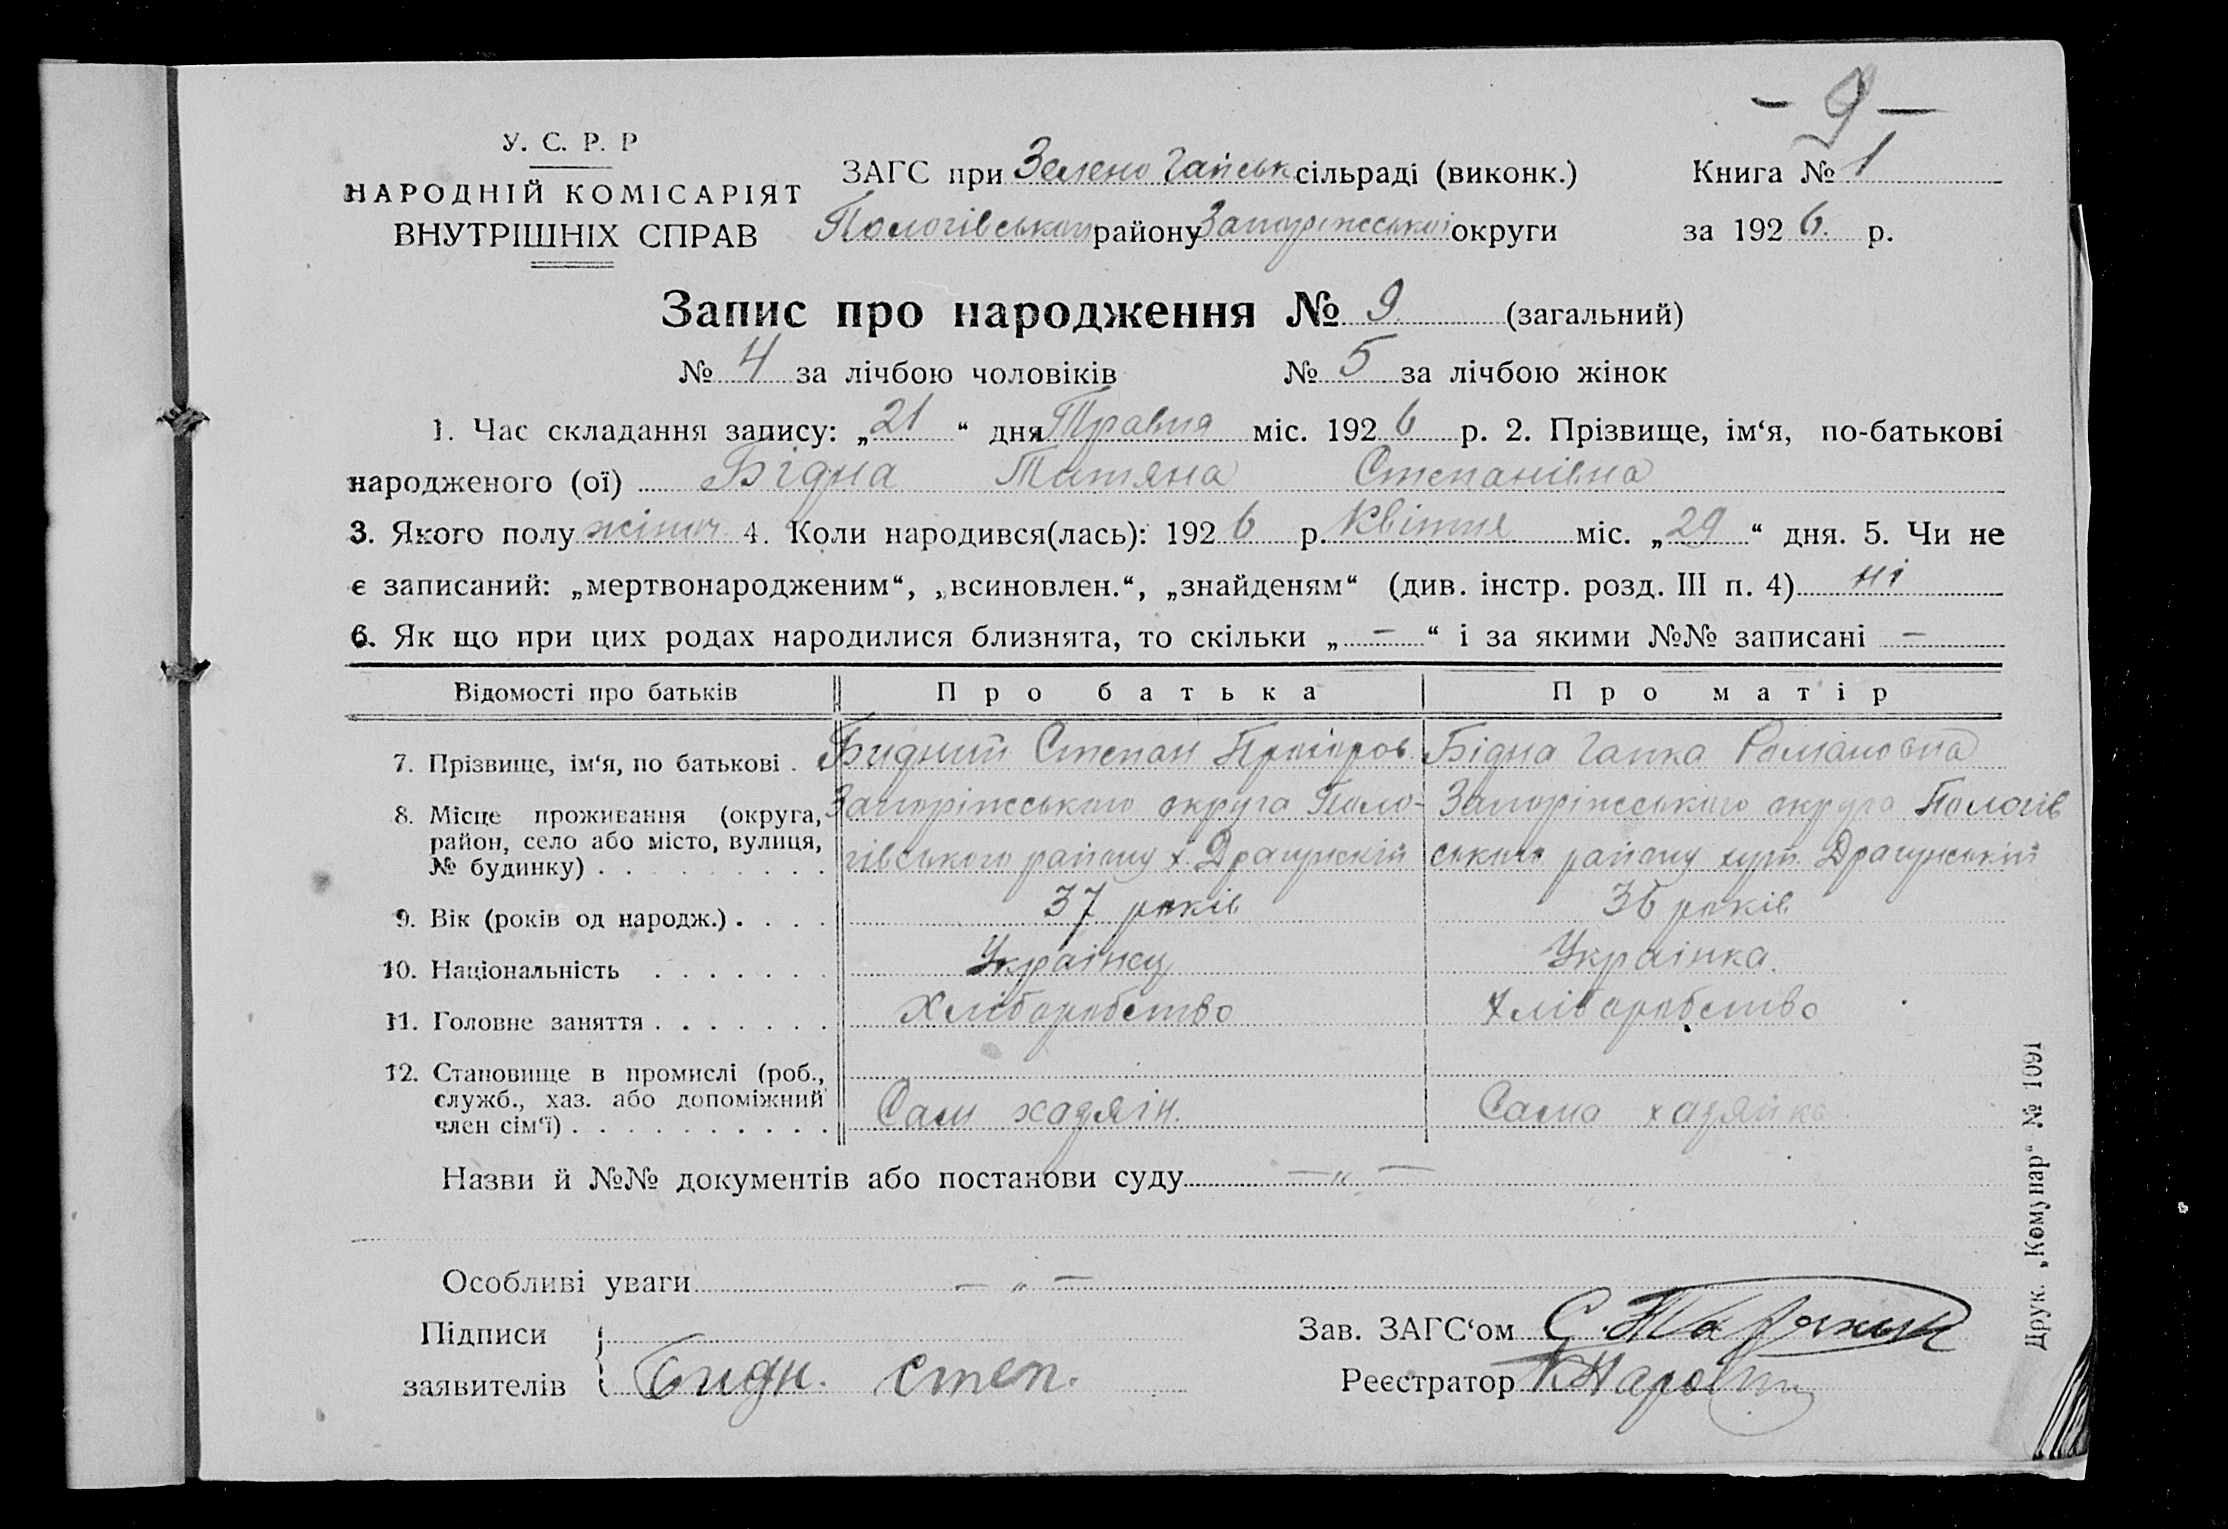 - 9 -
У. С. Р. Р
НАРОДНІЙ КОМІСАРІЯТ
ВНУТРІШНІХ СПРАВ
ЗАГС при Зелено Гайськ сільраді (виконк.)
Пологівського району Запоріжської округи
Книга № 1
за 1926. р.
Запис про народження № 9 (загальний)
№ 4 за лічбою чоловіків № 5 за лічбою жінок
1. Час складання запису: „21“ дня Травня міс. 1926 р. 2. Прізвище, ім‘я, по-батькові
народженого (ої) Бідна Татяна Степанівна
3. Якого полу жіноч 4. Коли народився(лась): 1926 р. Квітня міс. „29“ дня. 5. Чи не
є записаний: „мертвонародженим“, „всиновлен.“, „знайденям“ (див. інстр. розд. III п. 4) ні
6. Як що при цих родах народилися близнята, то скільки „ - “ і за якими №№ записані -
Відомості про батьків Про батька Про матір
7. Прізвище, ім‘я, по батькові . Бидний Степан Бідна Гапка Романовна
8. Місце проживання (округа, Запоріжського округа Поло- Запоріжського округа Пологів
район, село або місто, вулиця, гівського району х. Драгунскій ського району хут. Драгунській
№ будинку) . . . . . . . . .
9. Вік (років од народж.) . . . . 37 років 36 років
10. Національність . . . . . . . Українец Українка.
11. Головне заняття . . . . . . . Хліборобство Хліборобство
12. Становище в промислі (роб.,
служб., хаз. або допоміжний Сам хазяін. Сама хазяйка
член сім‘ї) . . . . . . . . . .
Назви й №№ документів або постанови суду — „ —
Особливі уваги — „ —
Підписи Зав. ЗАГС‘ом
заявителів Бидн. Степ. Реєстратор
Друк. „Комунар“ № 1091